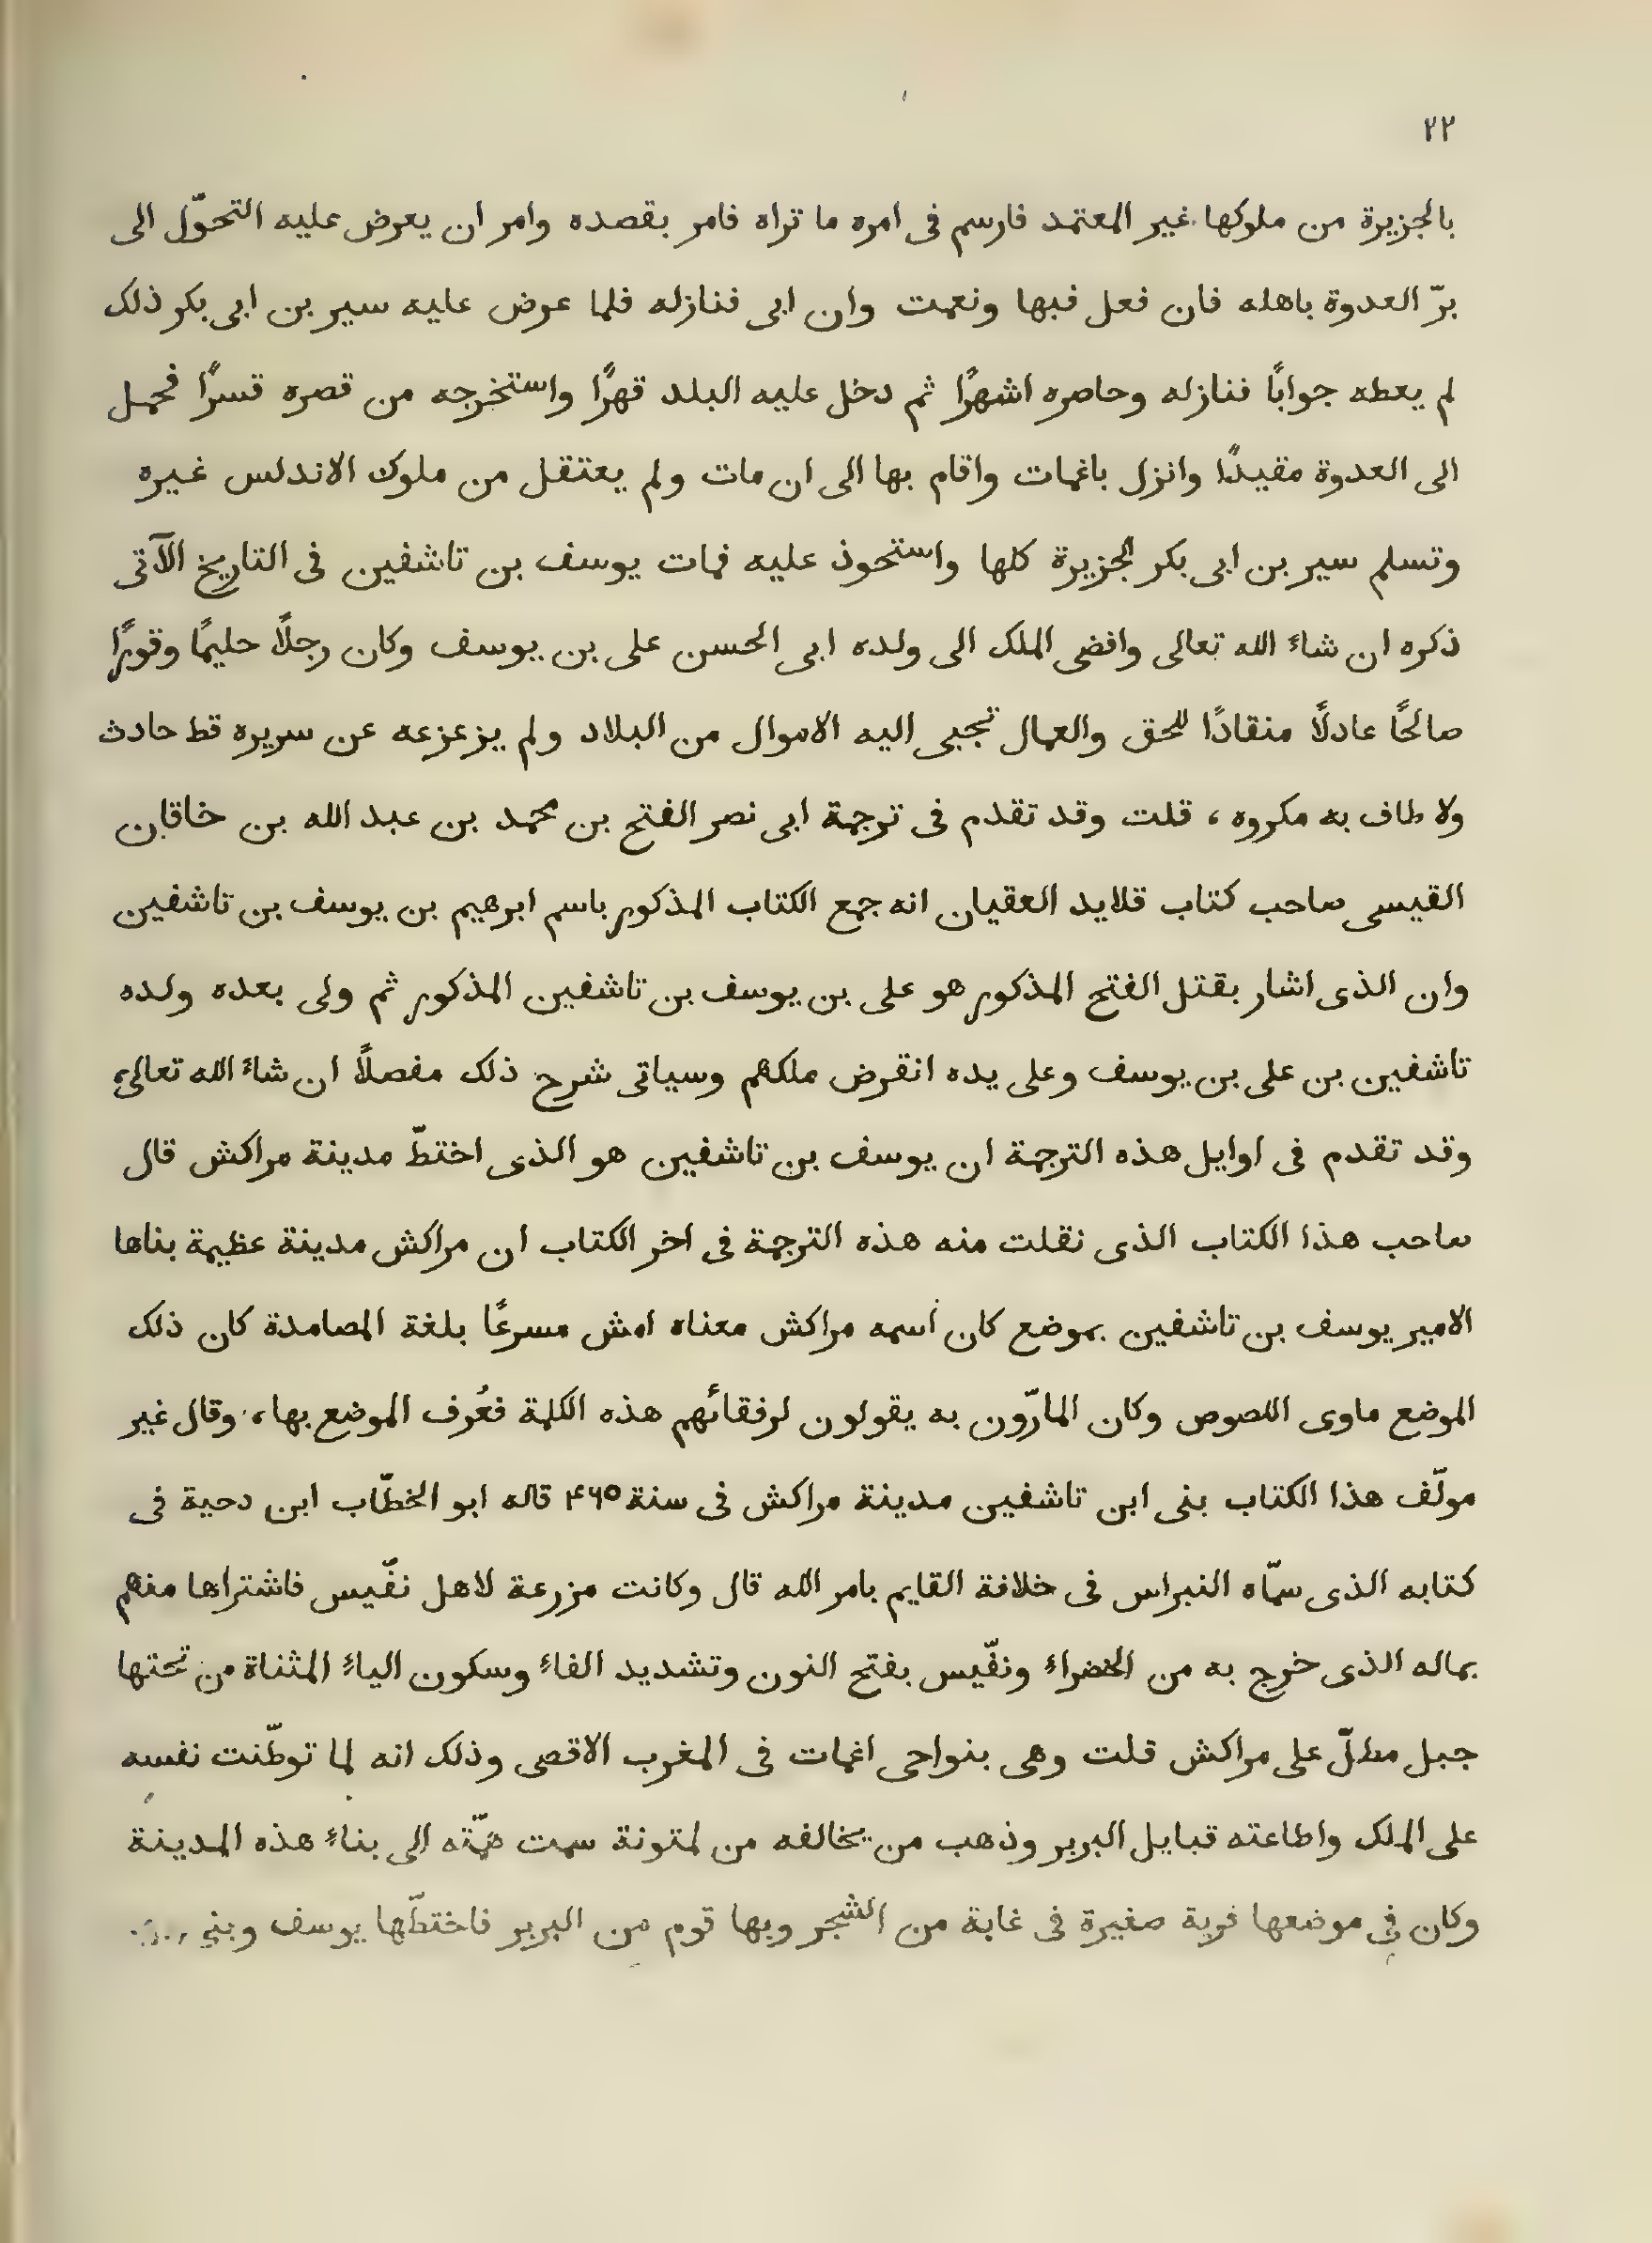 ٢٢
بالجزيرة من ملوكها غير المعتمد فارسم فى امره ما تراه فامر بقصده وامر ان يعرض عليه التحوّل الى
برّ العدوة باهله فان فعل فبها ونعمت وان ابى فنازله فلما عرض عليه سير بن ابى بكر ذلك
لم يعطه جوابًا فنازله وحاصره اشهرًا ثم دخل عليه البلد قهرًا واستخرجه من قصره قسرًا فحمل
الى العدوة مقيدًا وانزل باغمات واقام بها الى ان مات ولم يعتقل من ملوك الاندلس غيره
وتسلم سير بن ابى بكر الجزيرة كلها واستحوذ عليه فمات يوسف بن تاشفين فى التاريخ الآتى
ذكره ان شاء الله تعالى وافضى الملك الى ولده ابى الحسن على بن يوسف وكان رجلًا حليمًا وقورًا
صالحًا عادلًا منقادًا للحق والعمال تجبى اليه الاموال من البلاد ولم يزعزعه عن سريره قط حادث
ولا طاف به مكروه ، قلت وقد تقدم فى ترجمة ابى نصر الفتح بن محمد بن عبد الله بن خاقان
القيسى صاحب كتاب قلايد العقيان انه جمع الكتاب المذكور باسم ابرهيم بن يوسف بن تاشفين
وان الذى اشار بقتل الفتح المذكور هو على بن يوسف بن تاشفين المذكور ثم ولى بعده ولده
تاشفين بن على بن يوسف وعلى يده انقرض ملكهم وسياتى شرح ذلك مفصلًا ان شاء الله تعالى،
وقد تقدم فى اوايل هذه الترجمة ان يوسف بن تاشفين هو الذى اختطّ مدينة مراكش قال
صاحب هذا الكتاب الذى نقلت منه هذه الترجمة فى اخر الكتاب ان مراكش مدينة عظيمة بناها
الامير يوسف بن تاشفين بموضع كان اسمه مراكش معناه امش مسرعًا بلغة المصامدة كان ذلك
الموضع ماوى اللصوص وكان المارّون به يقولون لرفقائهم هذه الكلمة فعُرف الموضع بها، وقال غير
مولّف هذا الكتاب بنى ابن تاشفين مدينة مراكش فى سنة ۴۶۵ قاله ابو الخطّاب ابن دحية فى
كتابه الذى سمّاه النبراس فى خلافة القايم بامر الله قال وكانت مزرعة لاهل نفّيس فاشتراها منهم
بماله الذى خرج به من الخضراء ونفّيس بفتح النون وتشديد الفاء وسكون الياء المثناة من تحتها
جبل مطلّ على مراكش قلت وهى بنواحى اغمات فى المغرب الاقصى وذلك انه لما توطّنت نفسه
على الملك واطاعته قبايل البربر وذهب من يخالفه من لمتونة سمت همّته الى بناء هذه المدينة
وكان فى موضعها قرية صغيرة فى غابة من الشجر وبها قوم من البربر فاختطّها يوسف وبنى